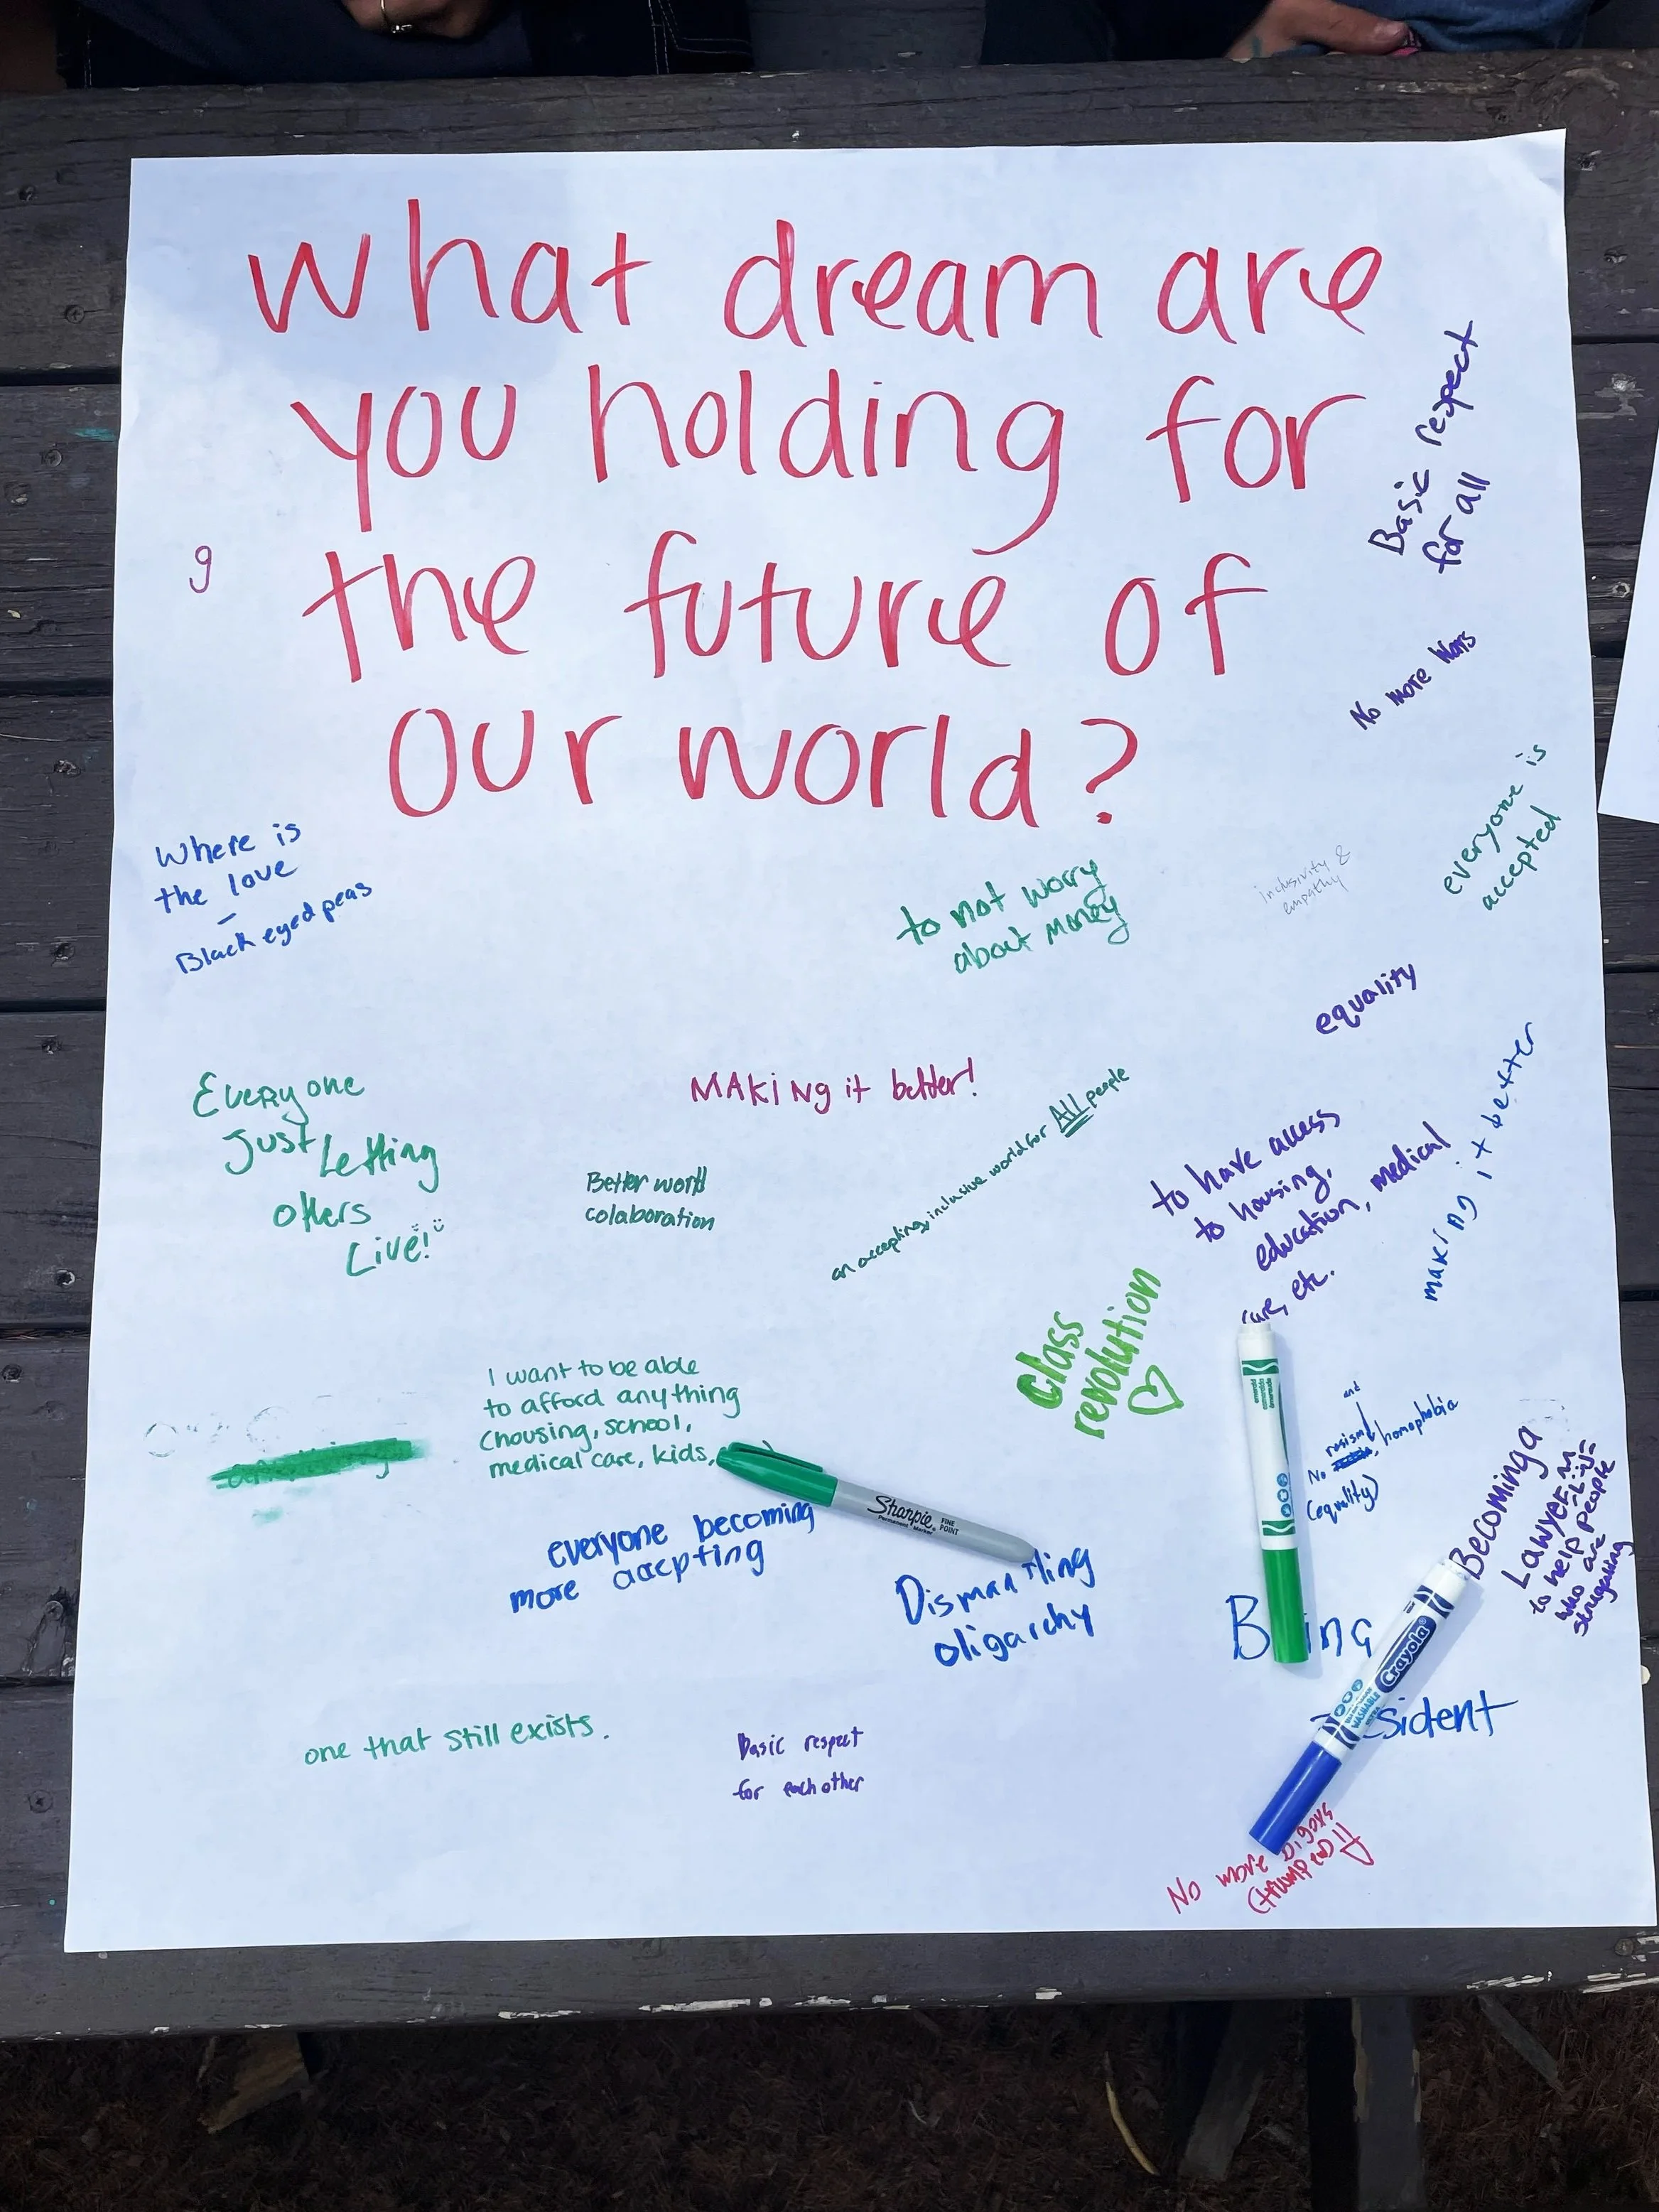 what dream are
you holding for
the future of
our world?
Basic respect
for all
g
No more Wars
everyone is
accepted
Where is
the love
-
Black eyed peas
to not worry
about money
inclusivity &
empathy
equality
Everyone
Just Letting
others
Live!
MAKiNg it better!
Better world
colaboration
an accepting, inclusive world for All people
to have access
to housing,
education, medical
care, etc.
making it better
class
revolution
I want to be able
to afford anything
(housing, school,
medical care, kids,
Sharpie
Permanent Marker
FINE
POINT
and
No racism, homophobia
(equality)
Becoming a
Lawyer
to help people
who are
struggling
everyone becoming
more accpting
Dismantling
oligarchy
B ing
sident
Crayola
WASHABLE
one that still exists.
Basic respect
for each other
No more